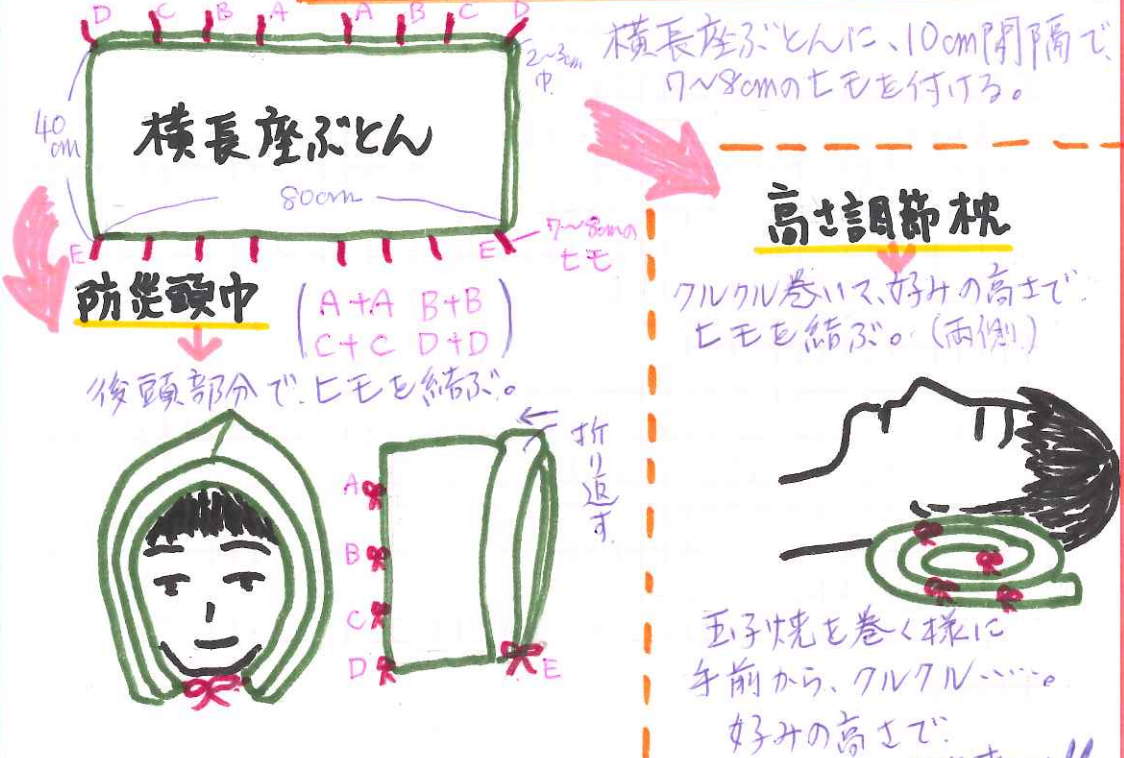 D C B A A B C D
2~3cm
巾
横長座ぶとんに、10cm間隔で
7~8cmのヒモを付ける。
40
cm
横長座ぶとん
80cm
E E
7~8cmの
ヒモ
防災頭巾
(A+A B+B
C+C D+D)
後頭部分で、ヒモを結ぶ。
折り返す。
A
B
C
D
E
高さ調節枕
クルクル巻いて、好みの高さで
ヒモを結ぶ。(両側)
玉子焼を巻く様に
手前から、クルクル……。
好みの高さで